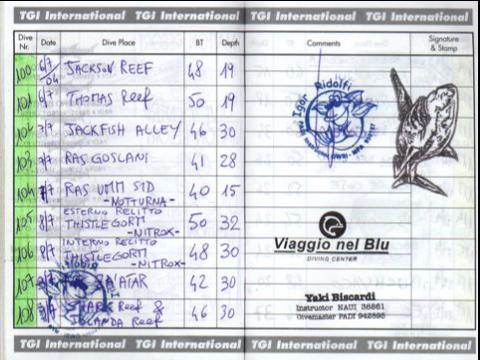 TGI International TGI International TGI International TGI International
Dive Nr. Date Dive Place BT Depth Comments Signature & Stamp
100 6/7/04 JACKSON REEF 48 19
101 6/7 THOMAS Reef 50 19
102 7/7 JACKFISH ALLEY 46 30
103 7/7 RAS GOSLANI 41 28
104 7/7 RAS UMM SID 40 15
-NOTTURNA-
105 8/7 ESTERNO RELITTO
THISTLEGORM 50 32
-NITROX-
106 8/7 INTERNO RELITTO
THISTLEGORM 48 30
-NITROX-
107 ZA'ATAR 42 30
108 SHARK Reef &
JOLANDA Reef 46 30
Igor Ridolfi
Viaggio nel Blu
DIVING CENTER
Yuki Biscardi
Instructor NAUI 36861
Divemaster PADI 942895
TGI International TGI International TGI International TGI International